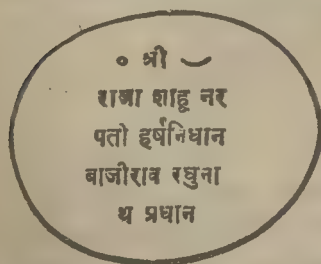 ० श्री
राजा शाहू नर
पती हर्षनिधान
बाजीराव रघुना
थ प्रधान